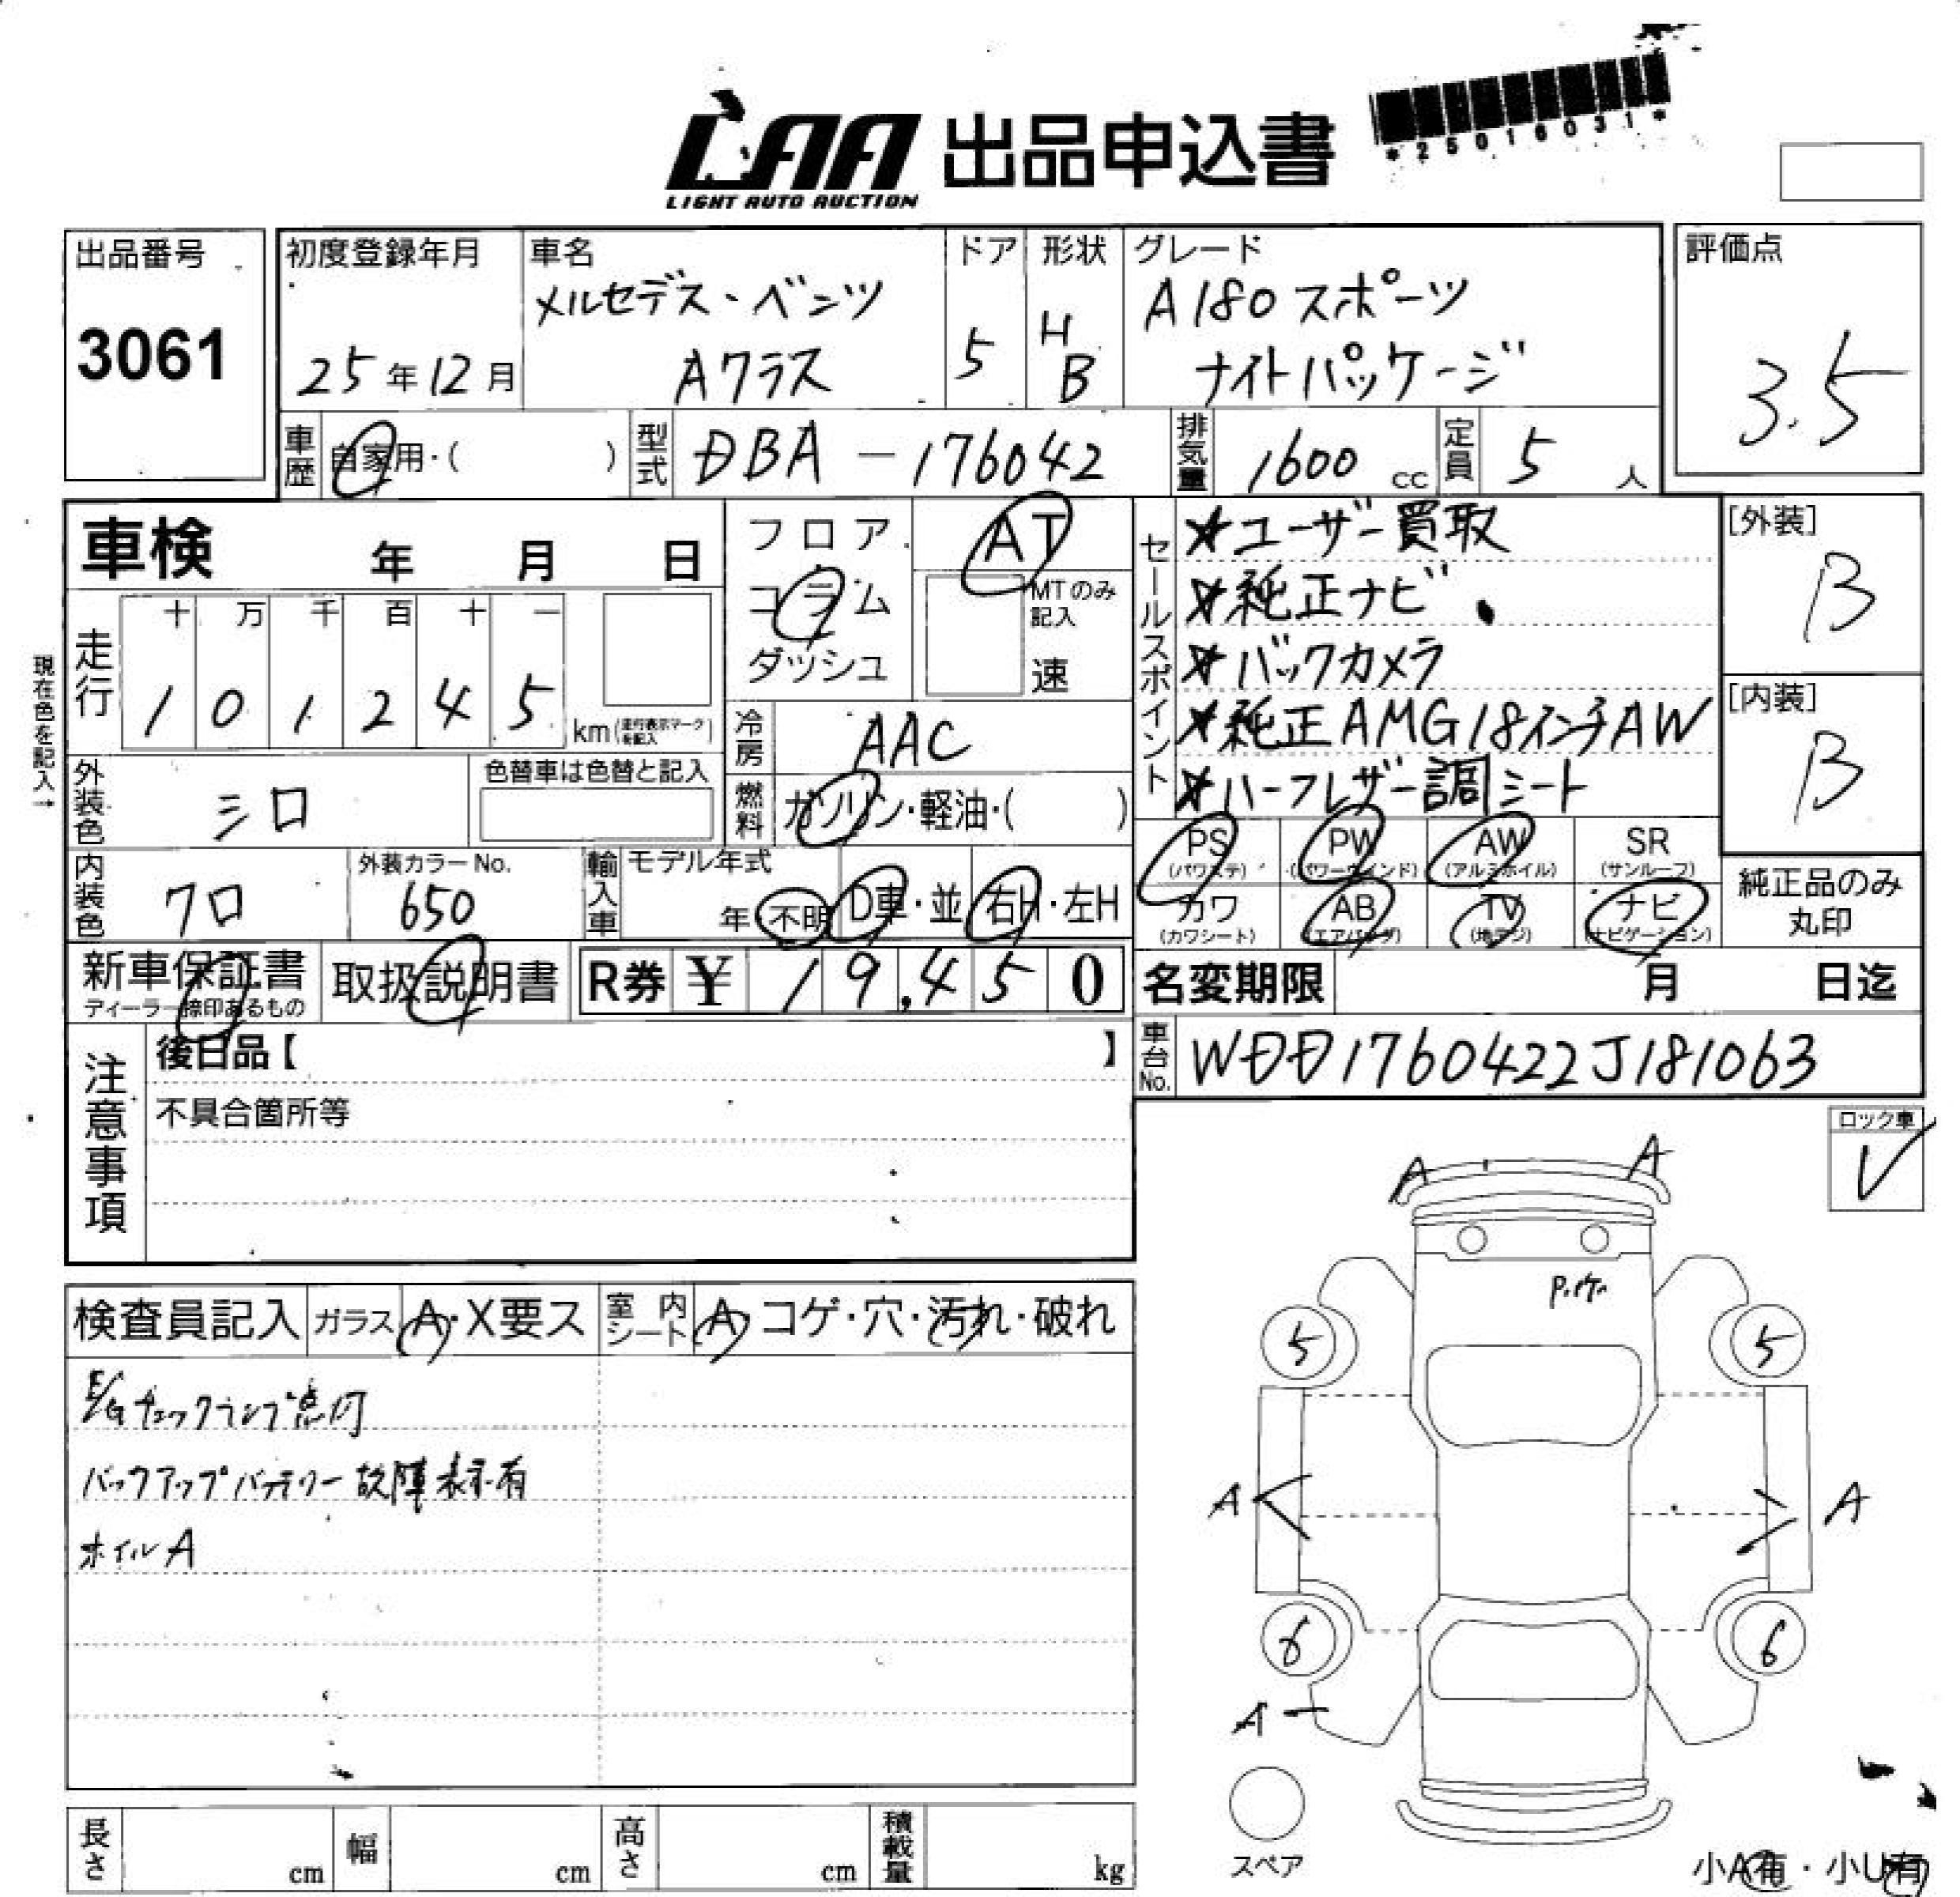 LAA 出品申込書
LIGHT AUTO AUCTION
*25016031*
出品番号
3061
初度登録年月
25年12月
車名
メルセデス・ベンツ
Aクラス
ドア
5
形状
H
B
グレード
A180スポーツ
ナイトパッケージ
評価点
3.5
車歴 自家用・( )
型式 DBA-176042
排気量 1600 cc
定員 5 人
車検 年 月 日
走行 十 万 千 百 十 一
1 0 1 2 4 5 km(走行表示マークを記入)
現在色を記入→
外装色 シロ
色替車は色替と記入
内装色 クロ
外装カラーNo.
650
フロア
コラム
ダッシュ
AT
MTのみ
記入
速
冷房 AAC
燃料 ガソリン・軽油・( )
輸入車 モデル年式
年 不明 D車・並 右H・左H
セールスポイント
★ユーザー買取
★純正ナビ
★バックカメラ
★純正AMG18インチAW
★ハーフレザー調シート
[外装]
B
[内装]
B
PS (パワステ)
PW (パワーウインド)
AW (アルミホイル)
SR (サンルーフ)
カワ (カワシート)
AB (エアバッグ)
TV (地デジ)
ナビ (ナビゲーション)
純正品のみ
丸印
新車保証書
ディーラー捺印あるもの
取扱説明書
R券 ¥ 19,450
名変期限 月 日迄
車台No. WDD1760422J181063
注意事項
後日品【 】
不具合箇所等
ロック車
✓
検査員記入 ガラス A・X要ス 室内シート A・コゲ・穴・汚れ・破れ
E/Gチェックランプ点灯
バックアップバッテリー故障表示有
ホイルA
A A
5 5
A A
6 6
A
スペア
長さ cm 幅 cm 高さ cm 積載量 kg
小A有・小U有